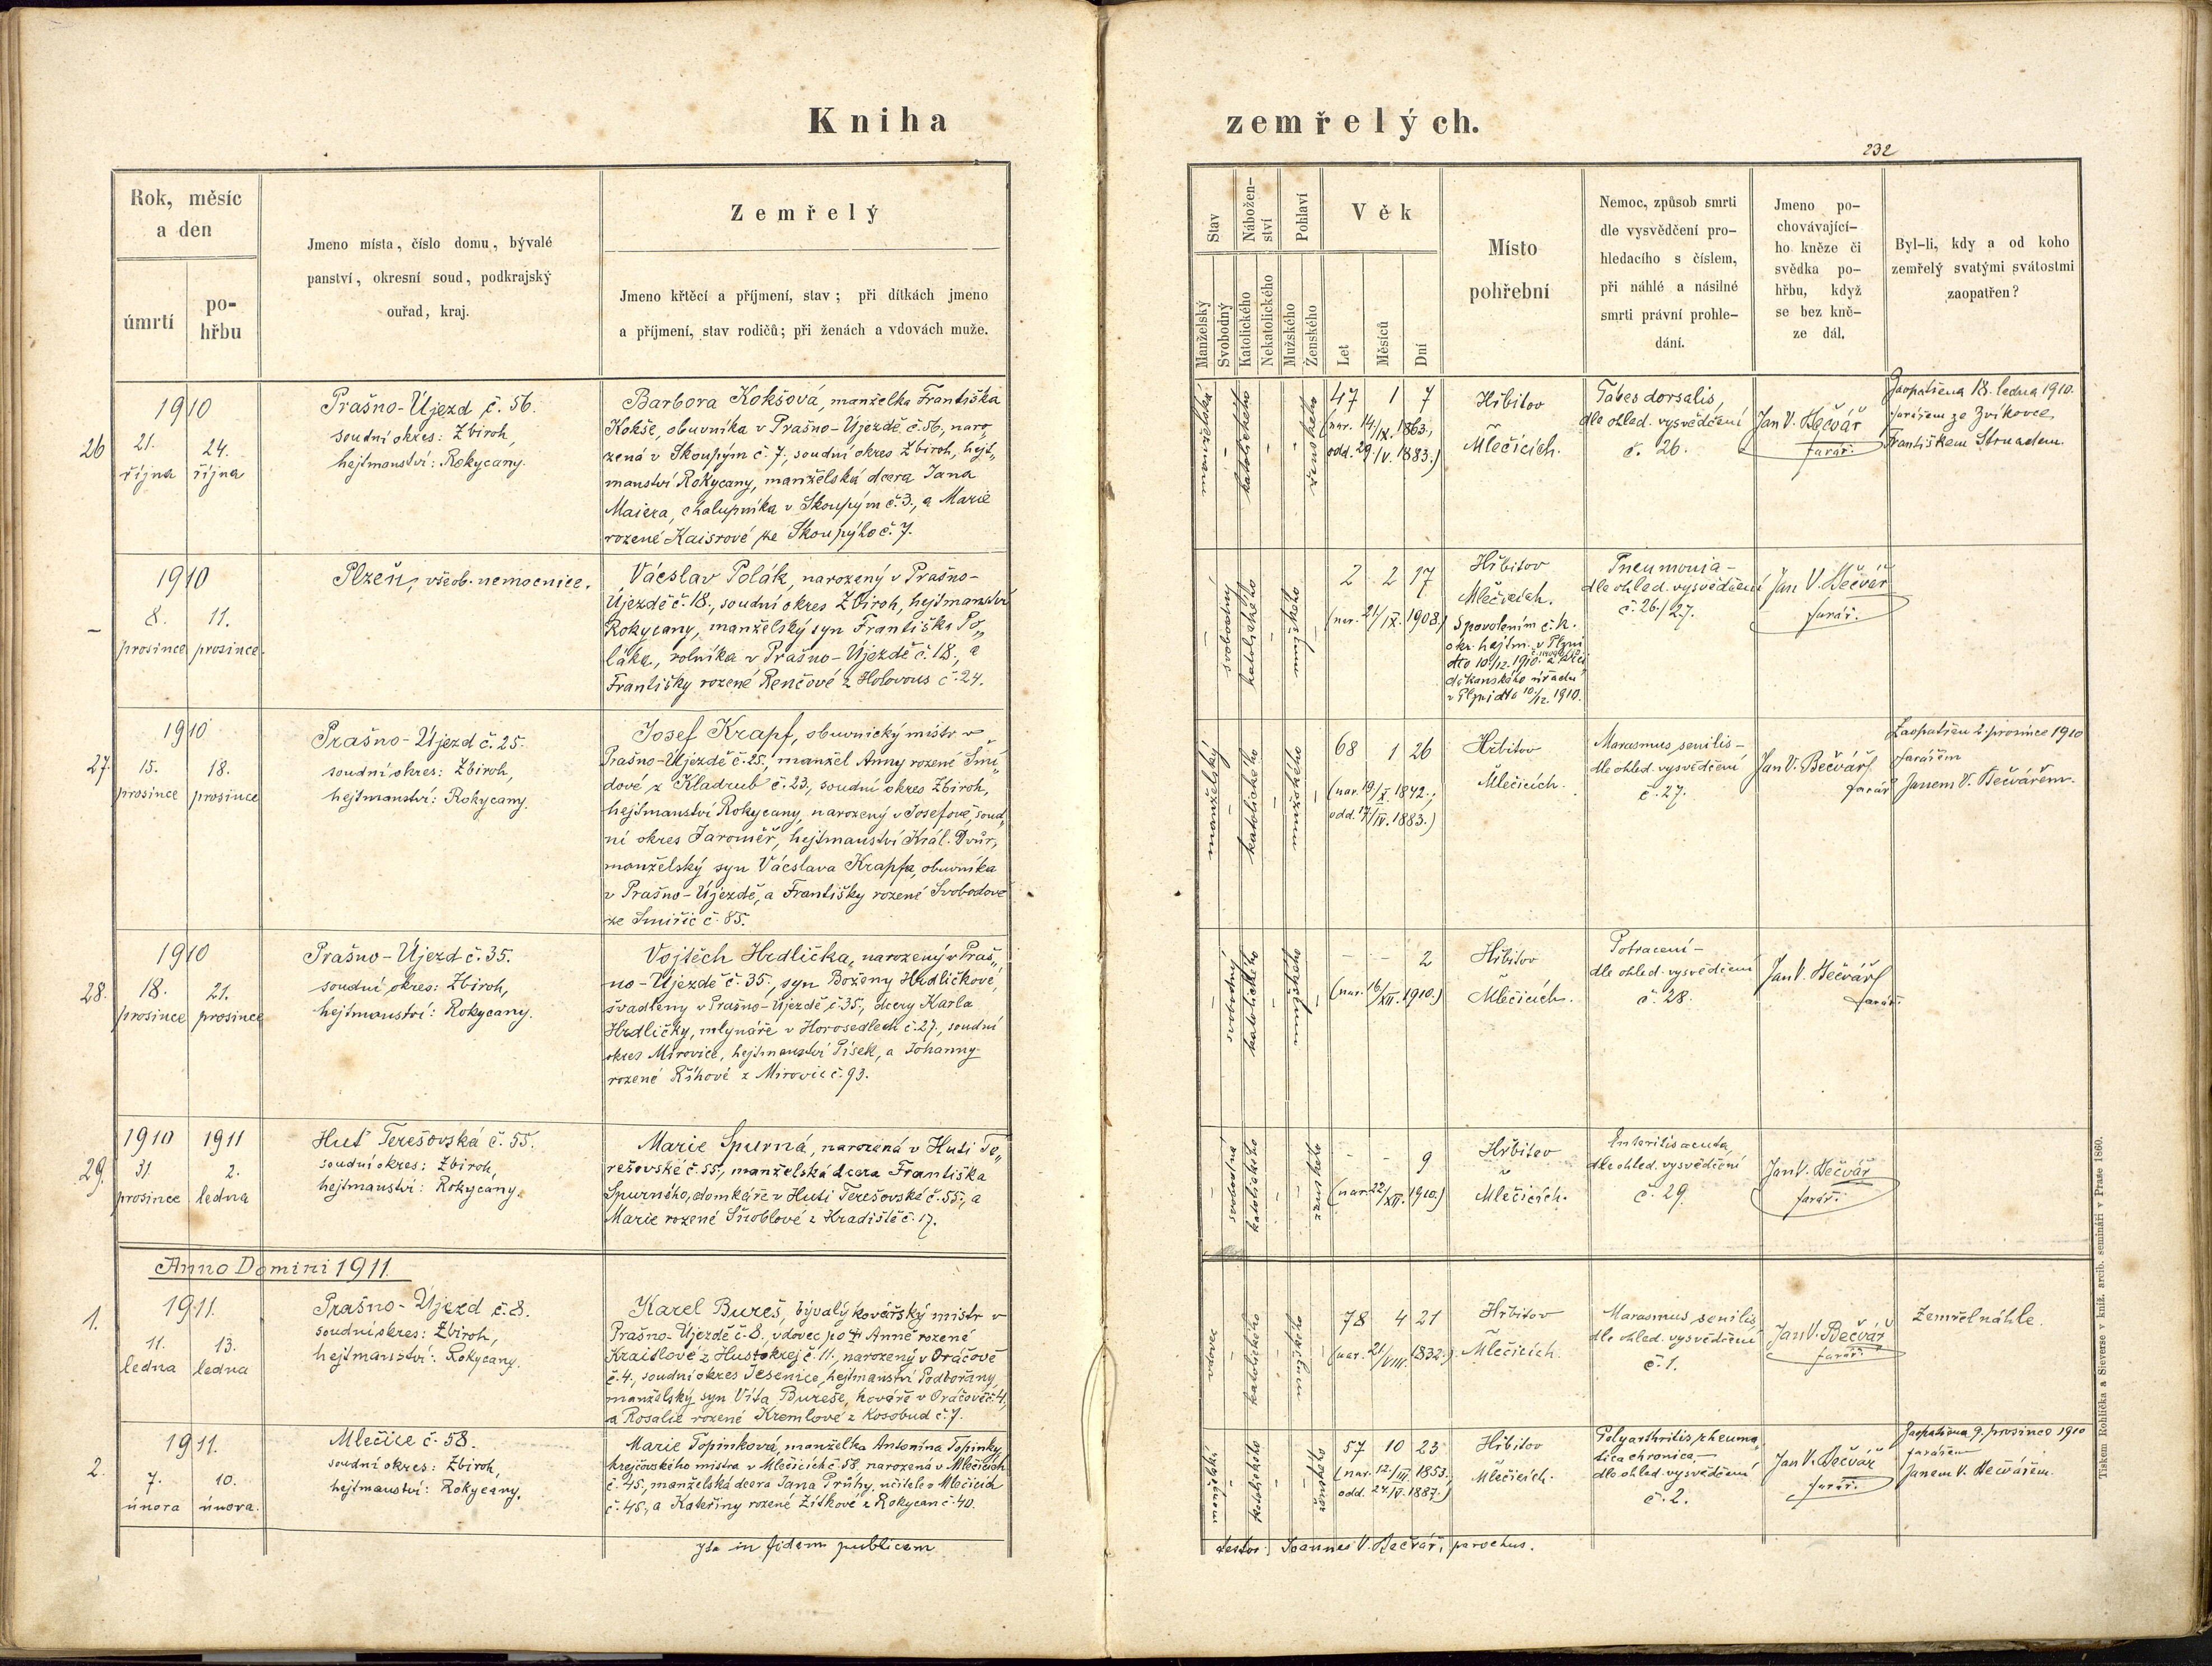 Kniha
zemřelých.
232
Rok, měsíc
a den
úmrtí
po-
hřbu
Jmeno místa, číslo domu, bývalé
panství, okresní soud, podkrajský
ouřad, kraj.
Zemřelý
Jmeno křtěcí a příjmení, stav; při dítkách jmeno
a příjmení, stav rodičů; při ženách a vdovách muže.
Stav
Nábožen-
ství
Pohlaví
Věk
Manželský
Svobodný
Katolického
Nekatolického
Mužského
Ženského
Let
Měsíců
Dní
Místo
pohřební
Nemoc, způsob smrti
dle vysvědčení pro-
hledacího s číslem,
při náhlé a násilné
smrti právní prohle-
dání.
Jmeno po-
chovávající-
ho kněze či
svědka po-
hřbu, když
se bez kně-
ze dál.
Byl-li, kdy a od koho
zemřelý svatými svátostmi
zaopatřen?
26
1910
21. 24.
října října
Prašno-Újezd č. 56.
soudní okres: Zbiroh,
hejtmanství: Rokycany.
Barbora Kokšová, manželka Františka
Kokše, obuvníka v Prašno-Újezdě č. 56., naro„
zená v Skoupým č. 7., soudní okres Zbiroh, hejt„
manství Rokycany, manželská dcera Jana
Maiera, chalupníka v Skoupým č. 3., a Marie
rozené Kaisrové ze Skoupýho č. 7.
katolického
ženského
47 1 7
(nar. 14/IX. 1863.,
odd. 29./V. 1883.)
Hřbitov
Mlečicích.
Tabes dorsalis,
dle ohled. vysvědčení
č. 26.
Jan V. Bečvář
farář.
Zaopatřena 18. ledna 1910.
farářem ze Zvíkovce
Františkem Strnadem.
–
1910
8. 11.
prosince prosince.
Plzeň, všeob. nemocnice.
Vácslav Polák, narozený v Prašno-
Újezdě č. 18., soudní okres Zbiroh, hejtmanství
Rokycany, manželský syn Františka Po„
láka, rolníka v Prašno-Újezdě č. 18., a
Františky rozené Renčové z Holovous č. 24.
svobodný
katolického
mužského
2 2 17
(nar. 21/IX. 1908.)
Hřbitov
Mlečicích.
S povolením c. k.
okr. hejtm. v Plzni
dto 10./12. 1910.
děkanského úřadu
v Plzni dto 10./12. 1910.
Pneumonia –
dle ohled. vysvědčení
č. 26./27.
Jan V. Bečvář
farář.
27.
1910
15. 18.
prosince prosince
Prašno-Újezd č. 25.
soudní okres: Zbiroh,
hejtmanství: Rokycany.
Josef Krapf, obuvnický mistr v
Prašno-Újezdě č. 25., manžel Anny rozené Šmí„
dové z Kladrub č. 23., soudní okres Zbiroh,
hejtmanství Rokycany, narozený v Josefově, soud„
ní okres Jaroměř, hejtmanství Král. Dvůr,
manželský syn Vácslava Krapfa, obuvníka
v Prašno-Újezdě, a Františky rozené Svobodové
ze Smiřic č. 85.
manželský
katolického
mužského
68 1 26
(nar. 19/X. 1842.;
odd. 17/IV. 1883.)
Hřbitov
Mlečicích.
Marasmus senilis –
dle ohled. vysvědčení
č. 27.
Jan V. Bečvář
farář
Zaopatřen 2. prosince 1910
farářem
Janem V. Bečvářem.
28.
1910
18. 21.
prosince prosince
Prašno-Újezd č. 35.
soudní okres: Zbiroh,
hejtmanství: Rokycany.
Vojtěch Hrdlička, narozený v Praš„
no-Újezdě č. 35., syn Boženy Hrdličkové,
švadleny v Prašno-Újezdě č. 35., dcery Karla
Hrdličky, mlynáře v Horosedlech č. 27., soudní
okres Mirovice, hejtmanství Písek, a Johanny
rozené Říhové z Mirovic č. 93.
svobodný
katolického
mužského
– – 2
(nar. 16/XII. 1910.)
Hřbitov
Mlečicích.
Potracení –
dle ohled. vysvědčení
č. 28.
Jan V. Bečvář
farář.
29.
1910 1911
31. 2.
prosince ledna
Huť Terešovská č. 55.
soudní okres: Zbiroh,
hejtmanství: Rokycany.
Marie Spurná, narozená v Huti Te„
rešovské č. 55., manželská dcera Františka
Spurného, domkáře v Huti Terešovské č. 55., a
Marie rozené Šnoblové z Hradiště č. 17.
svobodná
katolického
ženského
– – 9
(nar. 22/XII. 1910.)
Hřbitov
Mlečicích.
Enteritis acuta,
dle ohled. vysvědčení
č. 29.
Jan V. Bečvář
farář.
Anno Domini 1911.
1.
1911.
11. 13.
ledna ledna
Prašno-Újezd č. 8.
soudní okres: Zbiroh,
hejtmanství: Rokycany.
Karel Bureš, bývalý kovářský mistr v
Prašno-Újezdě č. 8., vdovec po † Anně rozené
Kraitlové z Hustokrej č. 11., narozený v Oráčově
č. 4., soudní okres Jesenice, hejtmanství Podbořany,
manželský syn Víta Bureše, kováře v Oráčově č. 4,
a Rosalie rozené Kremlové z Kosobud č. 7.
vdovec
katolického
mužského
78 4 21
(nar. 21/VIII. 1832.)
Hřbitov
Mlečicích.
Marasmus senilis
dle ohled. vysvědčení
č. 1.
Jan V. Bečvář
farář.
Zemřel náhle.
2.
1911.
7. 10.
února února.
Mlečice č. 58.
soudní okres: Zbiroh,
hejtmanství: Rokycany.
Marie Topinková, manželka Antonína Topinky,
krejčovského mistra v Mlečicích č. 58, narozená v Mlečicích
č. 45, manželská dcera Jana Průhy, učitele v Mlečicích
č. 45., a Kateřiny rozené Žítkové z Rokycan č. 40.
katolického
ženského
57 10 23
(nar. 12/III. 1853.,
odd. 24/IV. 1887.)
Hřbitov
Mlečicích.
Polyarthritis rheuma„
tica chronica –
dle ohled. vysvědčení
č. 2.
Jan V. Bečvář
farář.
Zaopatřena 9. prosince 1910
farářem
Janem V. Bečvářem.
Ita in fidem publicam
testor Joannes V. Bečvář, parochus.
Tiskem Rohlíčka a Sieverse v kníž. arcib. semináři v Praze 1860.